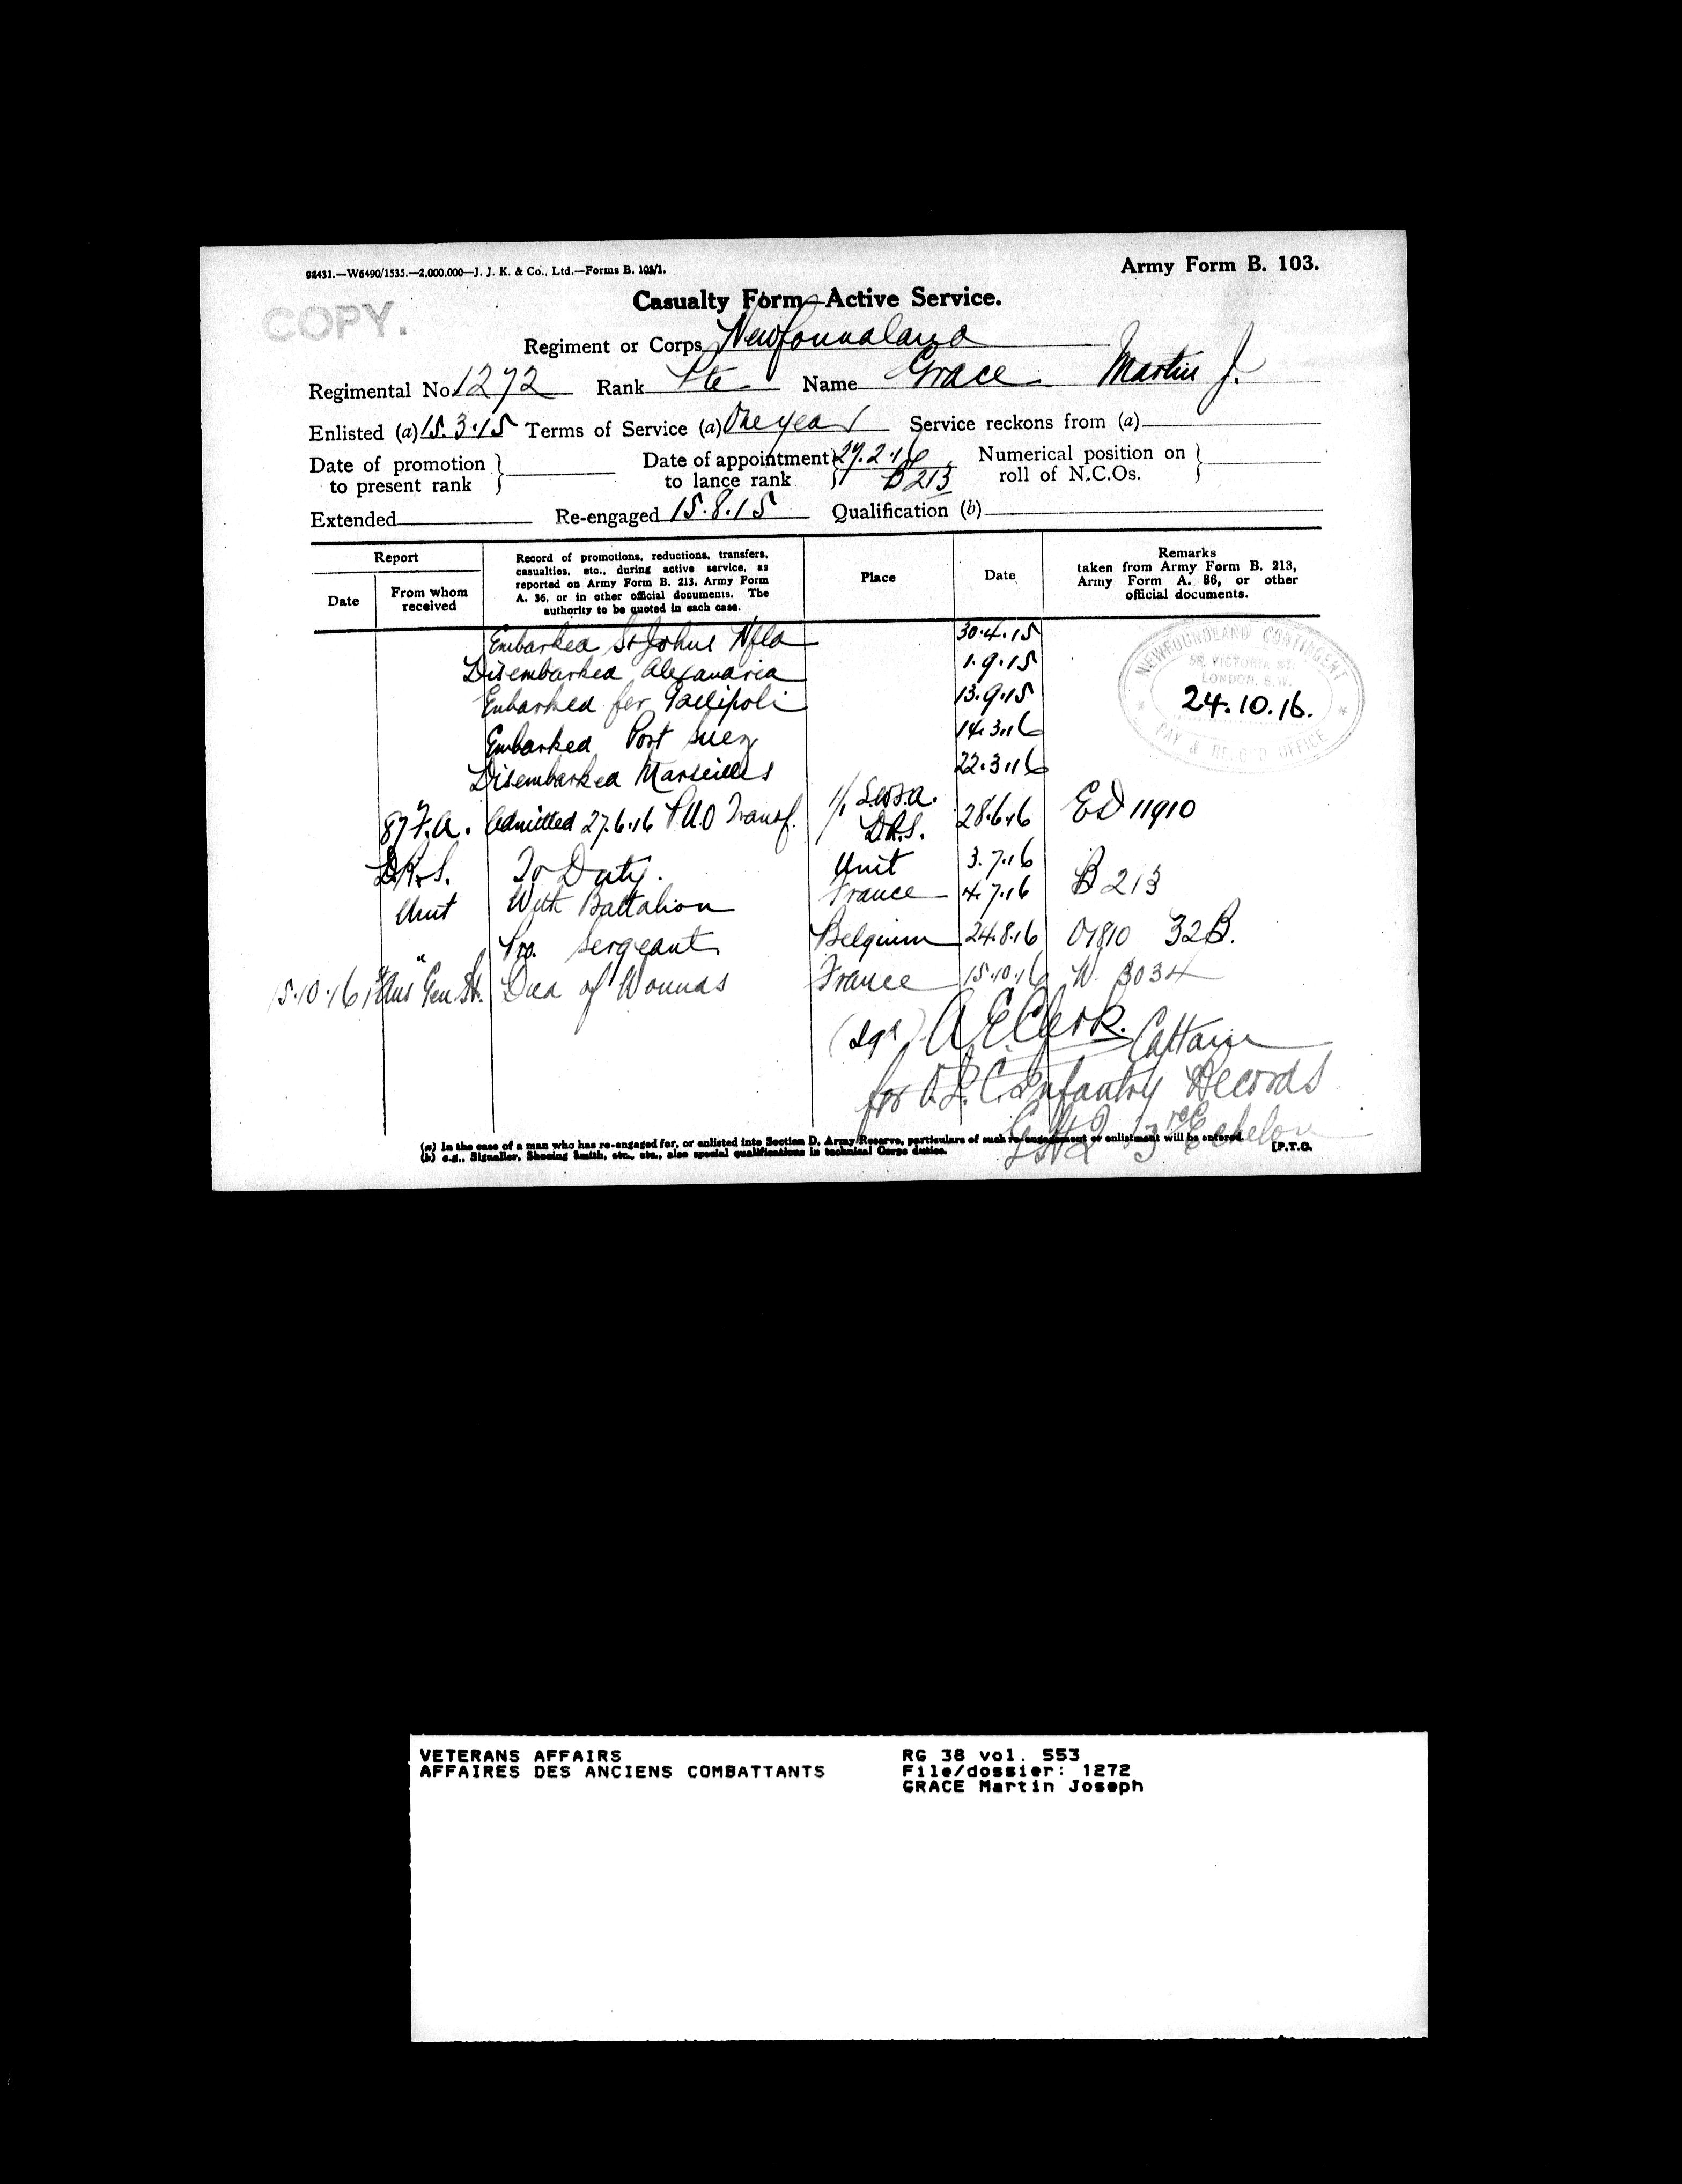 92431.—W6490/1535.—2,000,000—J. J. K. & Co., Ltd.—Forms B. 103/1.
Army Form B. 103.
COPY.
Casualty Form—Active Service.
Regiment or Corps Newfoundland
Regimental No. 1272 Rank Pte. Name Grace. Martin J.
Enlisted (a) 15.3.15 Terms of Service (a) One year Service reckons from (a)
Date of promotion to present rank
Date of appointment to lance rank 27.2.16 B 213
Numerical position on roll of N.C.Os.
Extended Re-engaged 15.8.15 Qualification (b)
Report
Date
From whom received
Record of promotions, reductions, transfers, casualties, etc., during active service, as reported on Army Form B. 213, Army Form A. 36, or in other official documents. The authority to be quoted in each case.
Place
Date
Remarks taken from Army Form B. 213, Army Form A. 36, or other official documents.
Embarked St Johns Nfld 30.4.15
Disembarked Alexandria 1.9.15
Embarked for Gallipoli 13.9.15
Embarked Port Suez 14.3.16
Disembarked Marseilles 22.3.16
NEWFOUNDLAND CONTINGENT
58, VICTORIA ST.
LONDON, S.W.
24.10.16.
PAY & RECORD OFFICE
87 F.A. Admitted 27.6.16 P.U.O Transf. 1/1 D.R.S. 28.6.16 ED 11910
D.R.S. To Duty. Unit 3.7.16
Unit With Battalion France 4.7.16 B 213
Pro. Sergeant Belgium 24.8.16 32B.
15.10.16 1st "Aus" Gen H. Died of Wounds France 15.10.16 W. 3034
(Sgd) A E Clerk. Captain
for O. I. C. Infantry Records
G.H.Q 3rd Echelon
(a) In the case of a man who has re-engaged for, or enlisted into Section D, Army Reserve, particulars of such re-engagement or enlistment will be entered.
(b) e.g., Signaller, Shoeing Smith, etc., etc., also special qualifications in technical Corps duties.
[P.T.O.
VETERANS AFFAIRS
AFFAIRES DES ANCIENS COMBATTANTS
RG 38 vol. 553
File/dossier: 1272
GRACE Martin Joseph